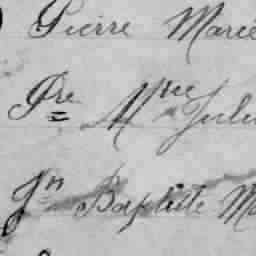 Pierre Marie
Pre Mme Julie
Jn Baptiste Ma